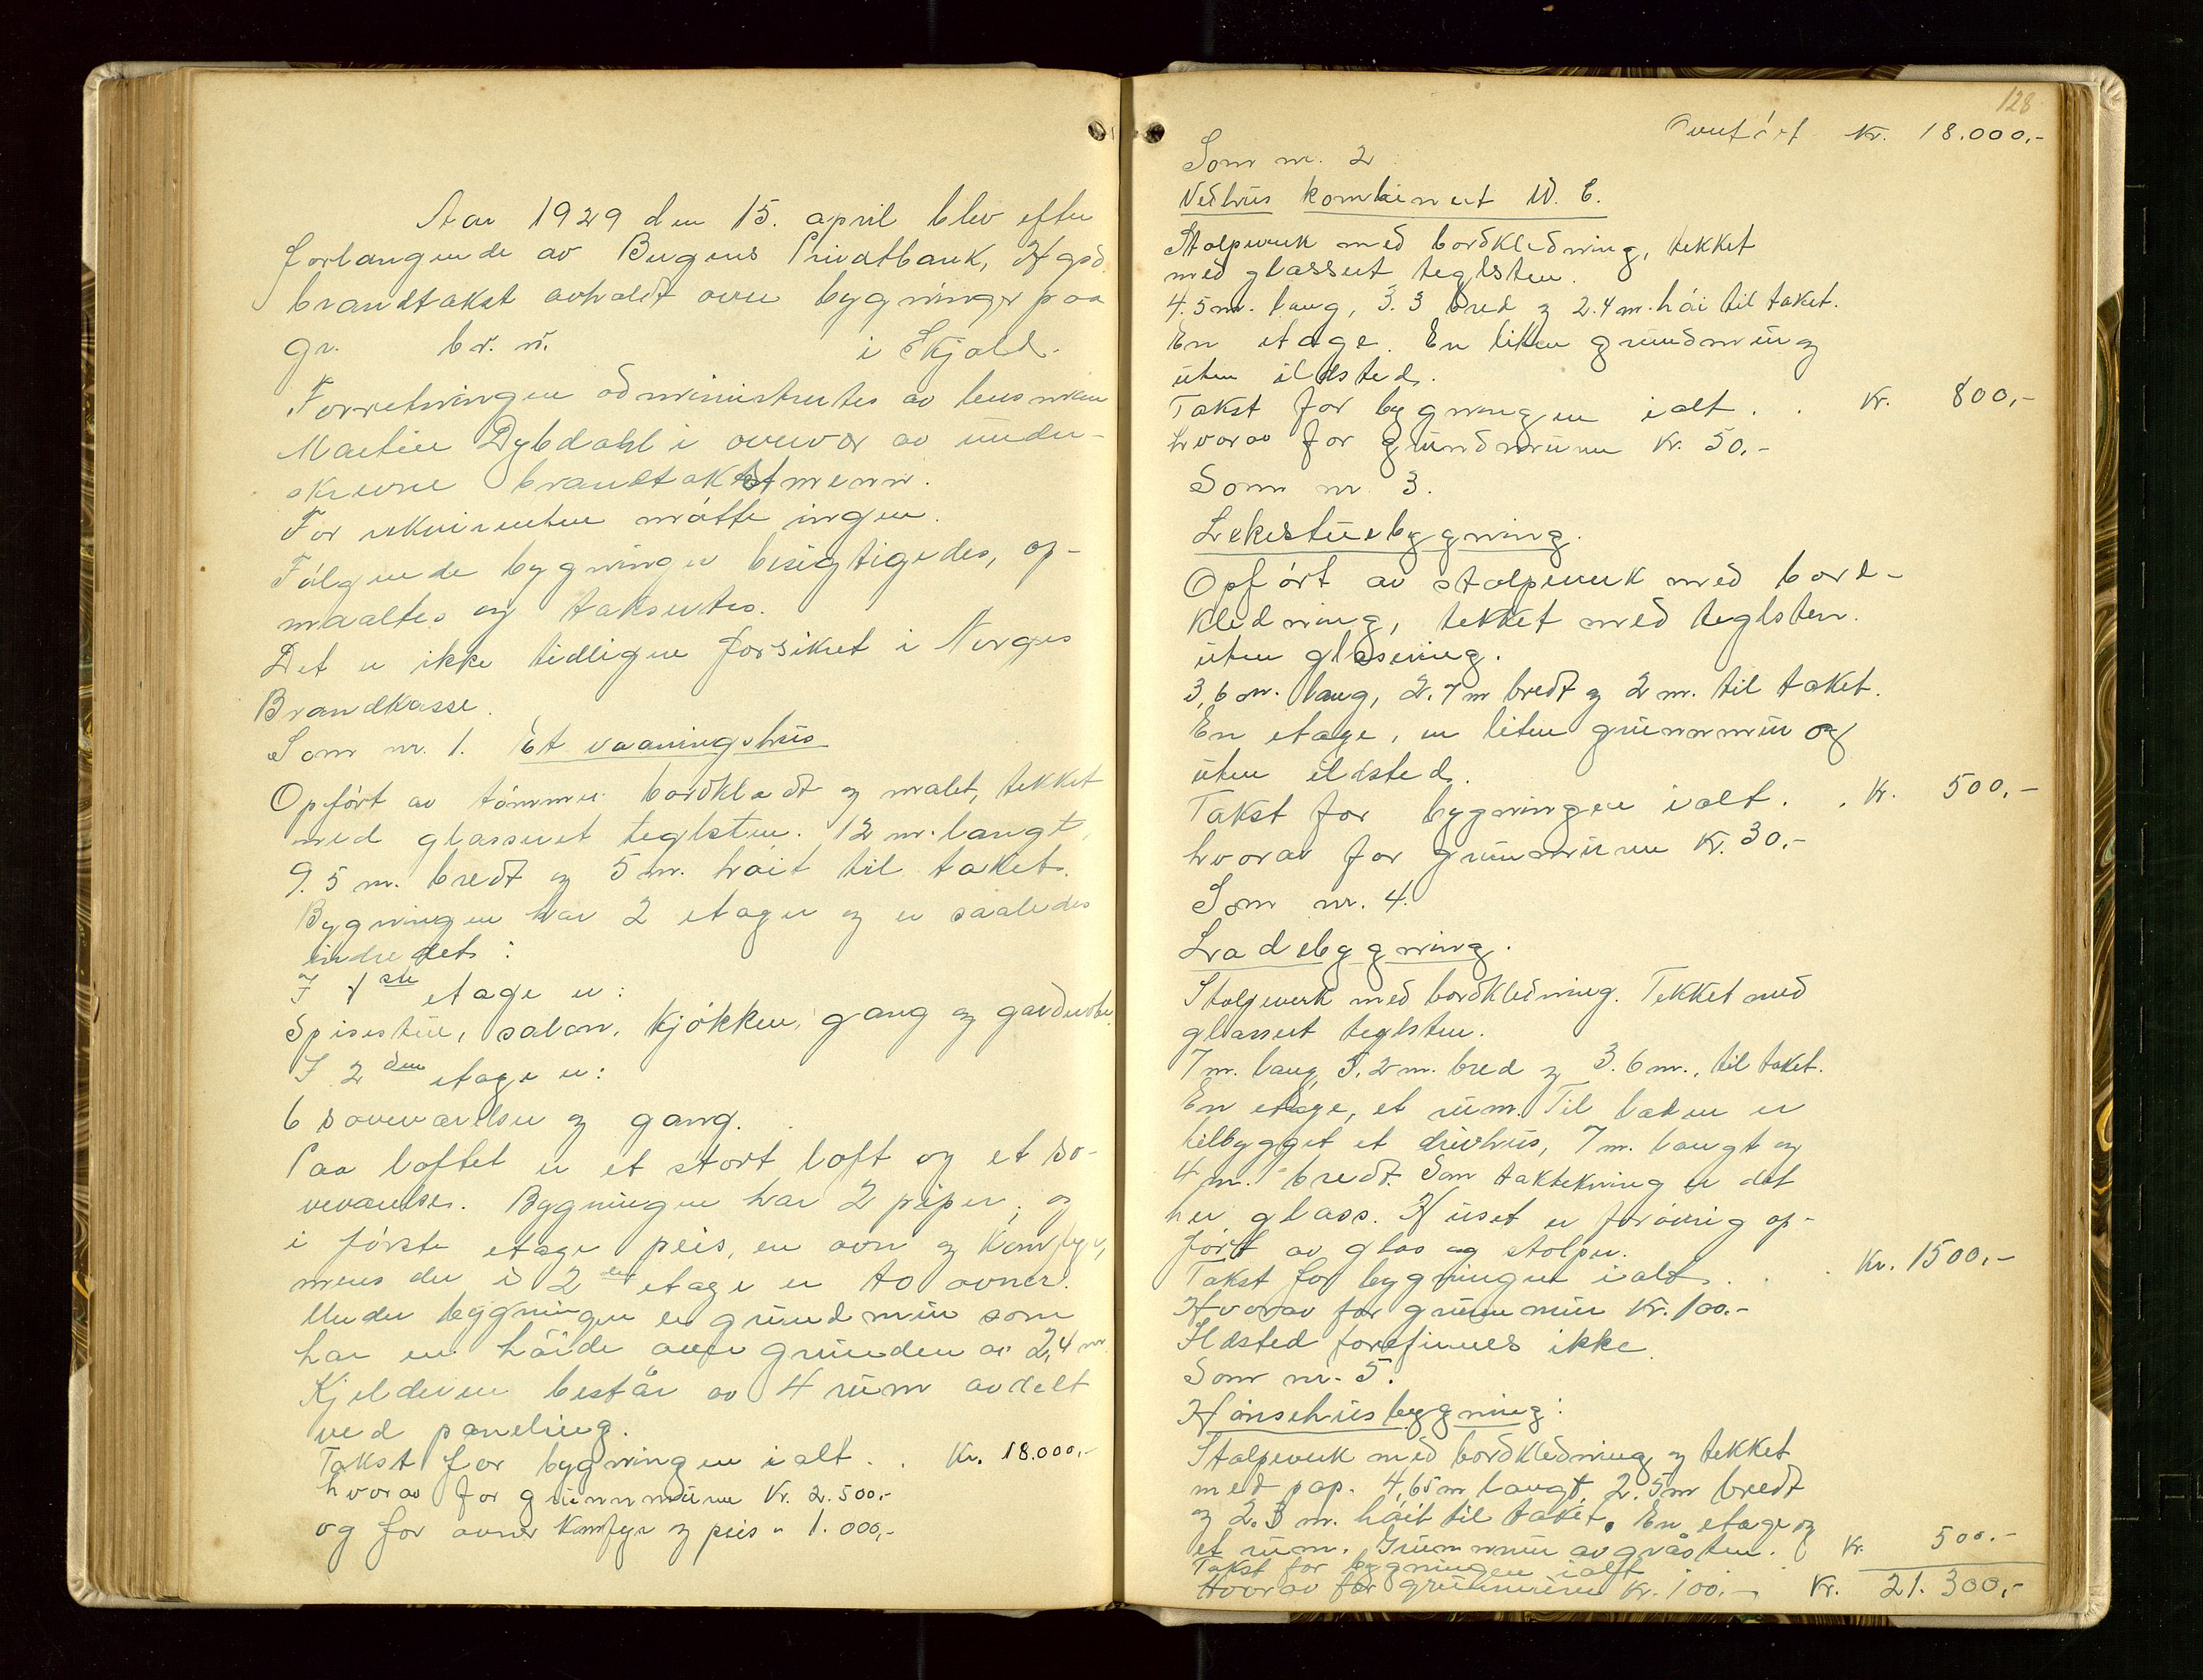 Aar 1929 den 15. april blev efter
forlangende av Bergens Privatbank, Hgsd.
brandtakst avholdt over bygninger paa
gr. br. nr. i Skjold.
Forretningen administrertes av lensmann
Martin Dybdahl i overvær av under-
skrevne brandtakstmenn.
For rekvirenten møtte ingen.
Følgende bygninger besigtigedes, op-
maaltes og taksertes.
Det er ikke tidligere forsikret i Norges
Brandkasse.
Som nr. 1. Et vaaningshus
Opført av tømmer bordkledt og malet, tekket
med glassert teglsten. 12 m. langt,
9.5 m. bredt og 5 m. høit til taket.
Bygningen har 2 etager og er saaledes
indredet:
I 1ste etage er:
Spisestue, salon, kjøkken, gang og garderobe.
I 2den etage er:
6 soveværelser og gang.
Paa loftet er et stort loft og et so-
veværelse. Bygningen har 2 piper, og
i første etage peis, en ovn og komfyr,
mens der i 2den etage er to ovner.
Under bygningen er grundmur som
har en høide over grunden av 2,4 m.
Kjelderen består av 4 rum avdelt
ved paneling.
Takst for bygningen ialt . . Kr. 18.000,-
hvorav for grunnmuren Kr. 2.500,-
og for ovner komfyr og peis " 1.000,-
128
Overført Kr. 18.000,-
Som nr. 2
Vedhus kombinert W. C.
Stolpeverk med bordkledning, tekket
med glassert teglsten.
4.5 m. lang, 3.3 bred og 2.4 m. høi til taket.
En etage. En liten grundmur og
uten ildsted.
Takst for bygningen ialt . . Kr. 800,-
hvorav for grundmuren Kr. 50,-
Som nr 3.
Lekestuebygning.
Opført av stolpeverk med bord-
kledning, tekket med teglsten
uten glasering.
3,6 m. lang, 2.7 m bredt og 2 m. til taket.
En etage, en liten grunnmur og
uten ildsted.
Takst for bygningen ialt . . Kr. 500,-
hvorav for grunnmuren Kr. 30,-
Som nr. 4.
Ladebygning.
Stolpeverk med bordkledning. Tekket med
glassert teglsten.
7 m. lang, 5.2 m. bred og 3.6 m., til taket.
En etage, et rum. Til laden er
tilbygget et drivhus, 7 m. langt og
4 m. bredt. Som taktekning er det
her glass. Huset er forøvrig op-
ført av glas og stolper.
Takst for bygningen ialt . . . Kr. 1500,-
Hvorav for grunnmur Kr. 100.-
Ildsted forefinnes ikke.
Som nr. 5.
Hønsehusbygning:
Stolpeverk med bordkledning og tekket
med pap. 4,65 m langt, 2.5 m bredt
og 2.3 m. høit til taket. En etage og
et rum. Grunnmur av gråsten.
Takst for bygningen ialt . . Kr. 500.-
Hvorav for grunnmuren Kr. 100.- Kr. 21.300,-